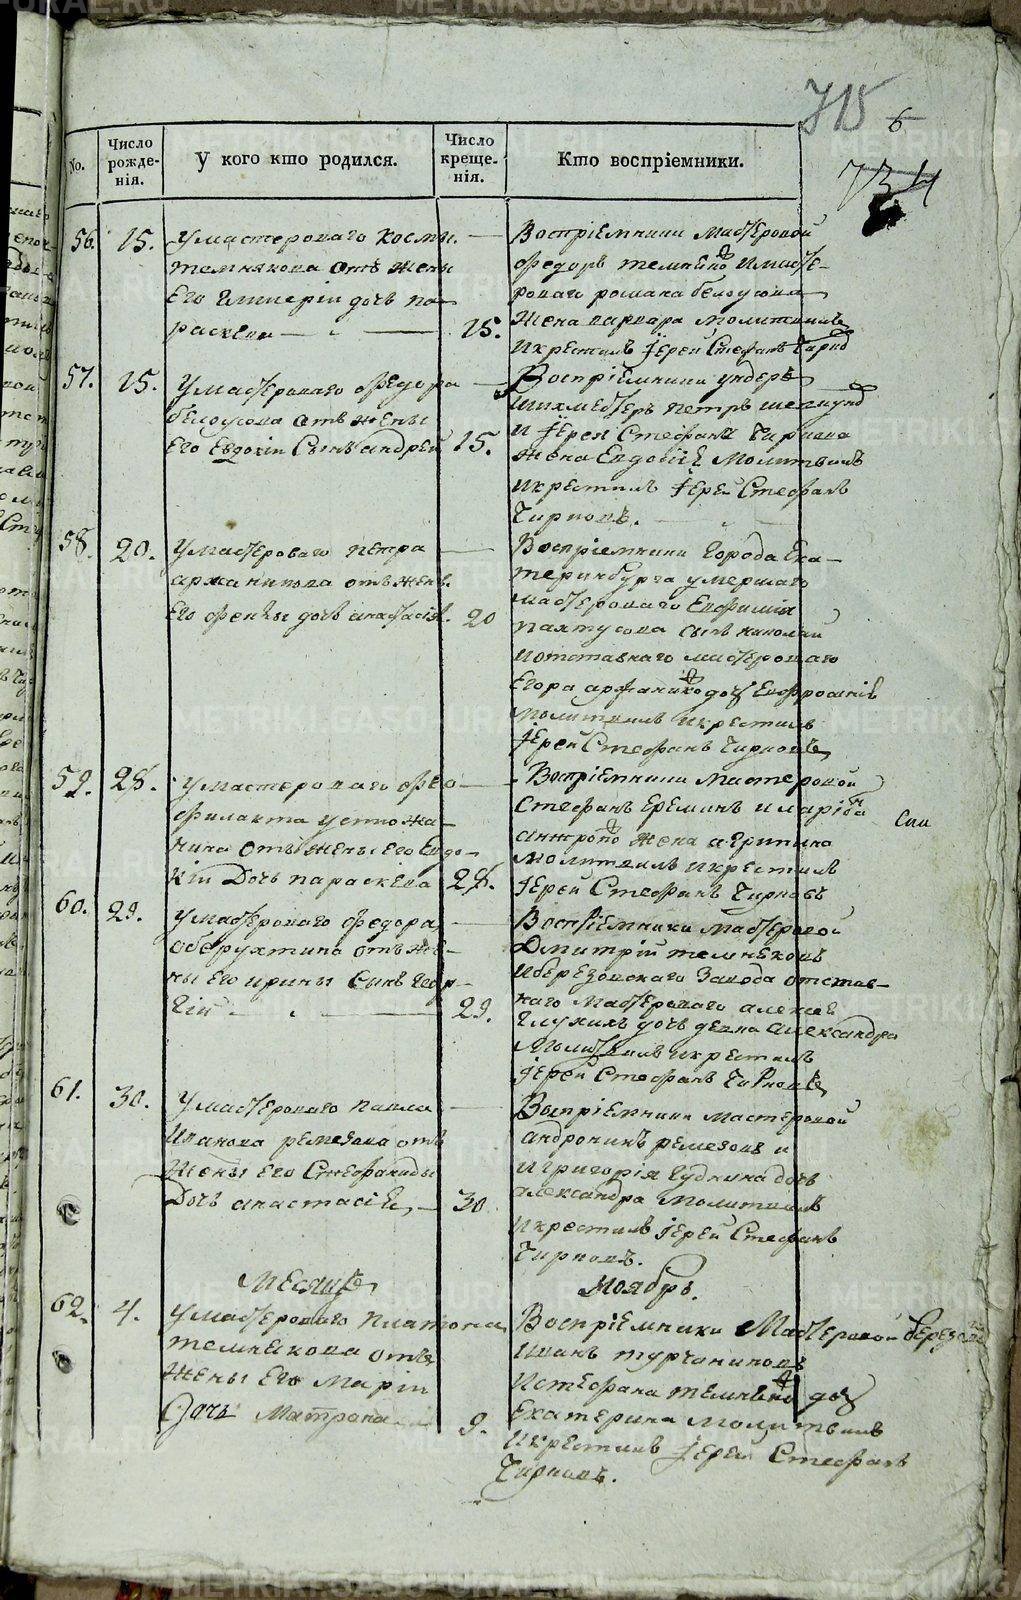 715
6
734
No.
Число рожденія.
У кого кто родился.
Число крещенія.
Кто воспріемники.
56.
15.
У мастероваго Козмы
темнякова отъ жены
Его Гликеріи дочь па
раскева
15.
Воспріемники мастеровой
Федоръ темнековъ и масте
роваго романа белоусова
жена варвара молитвилъ
и крестилъ Іерей Стефанъ Чирковъ
57.
15.
У мастероваго Федора
белоусова отъ жены
Его Евдокіи Сынъ андрей
15.
Воспріемники ундеръ
шихмейстеръ петръ
и Іерея Стефана Чиркова
жена Евдокіе молитвилъ
и крестилъ Іерей Стефанъ
Чирковъ.
58.
20.
У мастероваго петра
аржанникова отъ жены
Его Феклы дочь анастасія.
20
Воспріемники города Ека
теринбурга умершаго
мастероваго Евфимія
пахтусова сынъ николай
и отставнаго мастероваго
Егора аржаникова дочь Евфросинія
молитвилъ и крестилъ
Іерей Стефанъ Чирковъ
59.
28.
У мастероваго Фео
филакта устюжа
нина отъ жены его Евдо
кіи Дочь параскева
28.
Воспріемники мастеровой
Стефанъ Ереминъ и
жена агрипина
молитвилъ и крестилъ
Іерей Стефанъ Чирковъ
60.
29.
У мастероваго Федора
оберухтина отъ же
ны Его ирины Сынъ Геор
гій
29.
Воспріемники мастеровой
Дмитрій темнековъ
и березовскаго Завода отстав
наго мастероваго алексея
Глухихъ дочь девка александра
Молитвилъ и крестилъ
Іерей Стефанъ Чирковъ
61.
30.
У мастероваго павла
Иванова ремезова отъ
Жены Его Стефаниды
Дочь анастасіе
30
Воспріемники мастеровой
андроникъ ремезовъ и
и григорія Гудкина дочь
александра молитвилъ
и крестилъ іерей Стефанъ
Чирковъ.
Месяцъ
Ноябрь.
62.
4.
У мастероваго платона
темнекова отъ
жены Его Маріи
Дочь Матрона
9.
Воспріемники Мастеровой
Иванъ турчаниновъ
и стефана темнекова дочь
Екатерина молитвилъ
и крестилъ іерей Стефанъ
Чирковъ.
METRIKI.GASO-URAL.RU